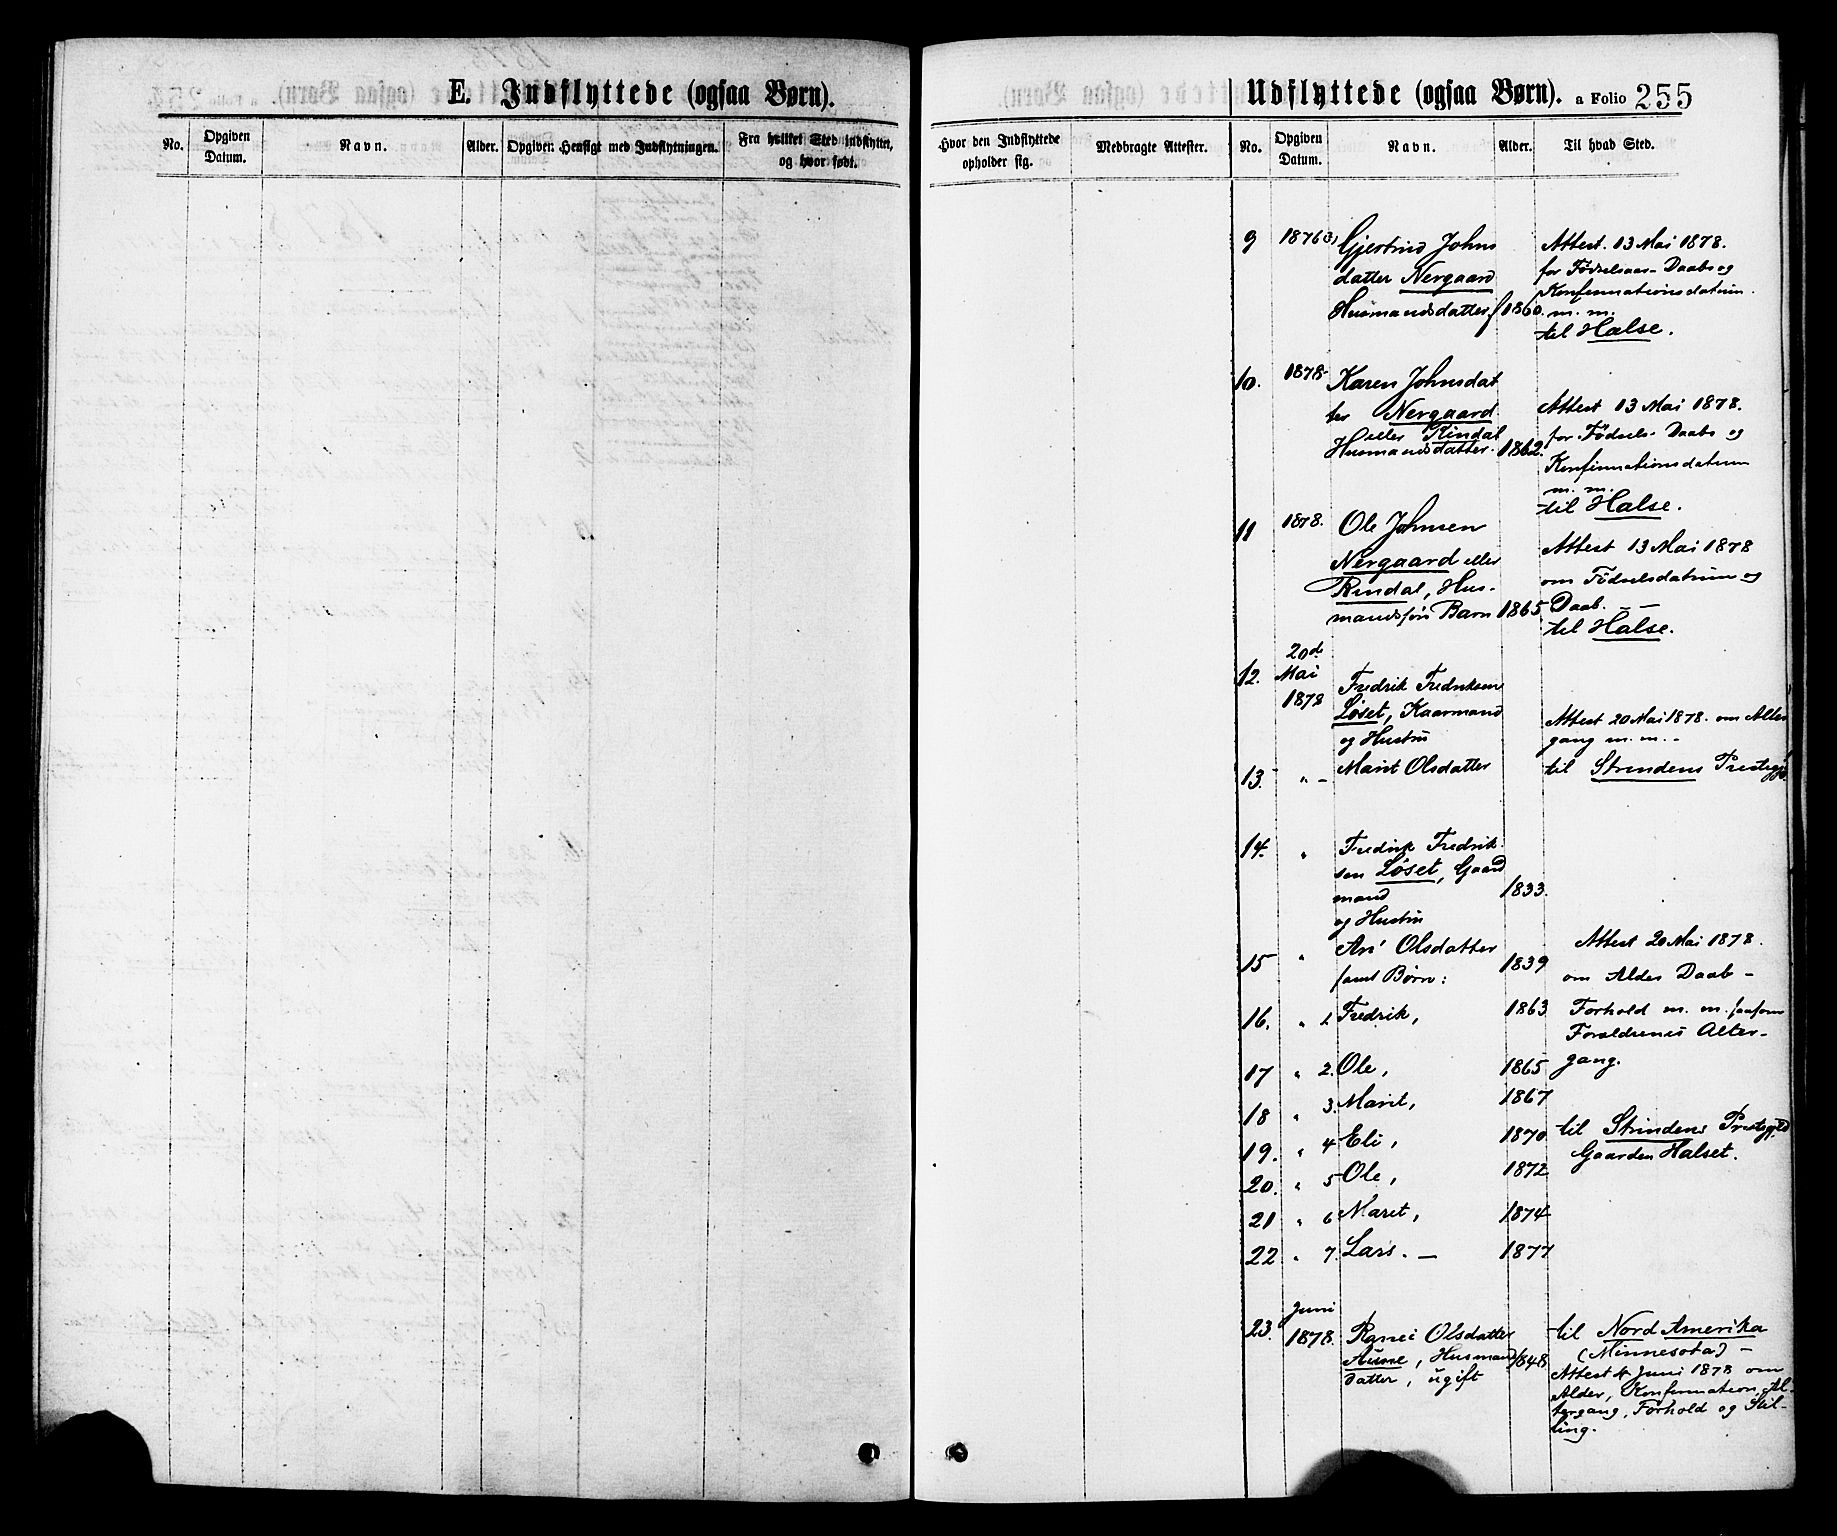 E. Indflyttede (ogsaa Børn).
No.
Opgiven
Datum.
Navn.
Alder.
Opgiven Hensigt med Indflytningen.
Fra hvilket Sted indflyttet,
og hvor født.
Udflyttede (ogsaa Børn). a Folio 255
Hvor den Indflyttede
opholder sig.
Medbragte Attester.
No.
Opgiven
Datum.
Navn.
Alder.
Til hvad Sted.
9 Gjertrud Johns
datter Nergaard
Husmandsdatter f 1860.
Attest. 13 Mai 1878.
for Fødselsaar- Daabs og
Konfirmationsdatum
m. m.
til Halse.
10. 1878. Karen Johnsdat
ter Nergaard
eller Rindal
Husmandsdatter. 1862.
Attest 13 Mai 1878.
for Fødsels- Daabs og
Konfirmationsdatum
m. m.
til Halse.
11 1878. Ole Johnsen
Nergaard eller
Rindal, Hus-
mandsføri Barn 1865
Attest 13 Mai 1878
om Fødselsdatum og
Daab. —
til Halse.
12. 20de
Mai
1878 Fredrik Fredriksen
Løset, Kaarmand
og Hustru
13. " - Marit Olsdatter
Attest 20 Mai 1878. om Alter
gang m. m. -
til Strindens Prestegjd
14. " Fredrik Fredrik
sen Løset, Gaard
mand 1833.
og Hustru
15 " Ari Olsdatter 1839
samt Børn:
16. " 1 Fredrik, 1863
17 " 2. Ole, 1865
18 " 3. Marit, 1867
19. " 4 Eli, 1870
20. " 5 Ole, 1872
21 " 6 Maret, 1874
22 " 7. Lars. — 1877
Attest 20 Mai 1878.
om Alder Daab -
Forhold m. m. saasom
Forældrenes Alter-
gang.
til Strindens Prestegjeld
Gaarden Halset.
23. Juni
1878. Ranei Olsdatter
Aune, Husmand 1848
datter, ugift
til Nord Amerika
(Minnesota) -
Attest 4 Juni 1878 om
Alder, Konfirmation, Al-
tergang, Forhold og Stil-
ling.